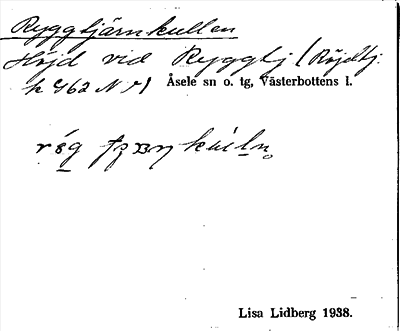 Ryggtjärnkullen
Höjd vid Ryggtj (Röjdtj.
h 462 N r) Åsele sn o. tg, Västerbottens l.
Lisa Lidberg 1938.